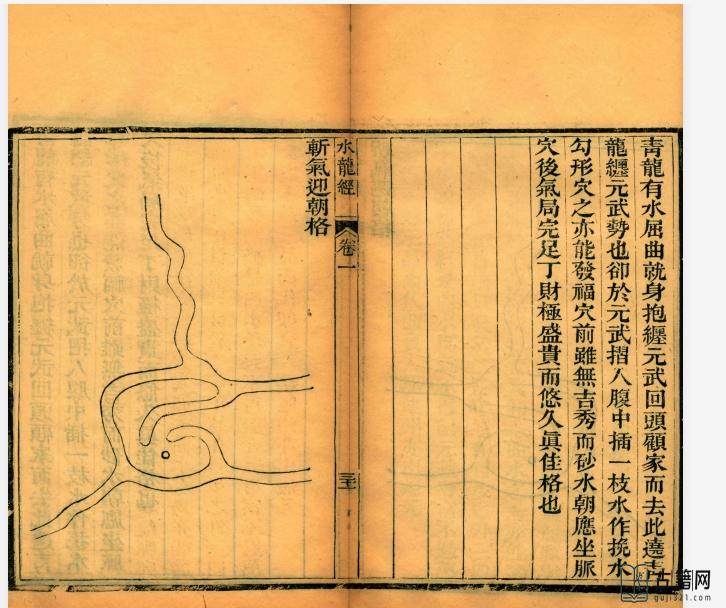 青龍有水屈曲就身抱纏元武回頭顧家而去此遶青
龍纏元武勢也卻於元武摺入腹中插一枝水作挽水
勾形穴之亦能發福穴前雖無吉秀而砂水朝應坐脈
穴後氣局完足丁財極盛貴而悠久眞佳格也
水龍經
卷一
三十一
斬氣迎朝格
古籍网
guji321.com